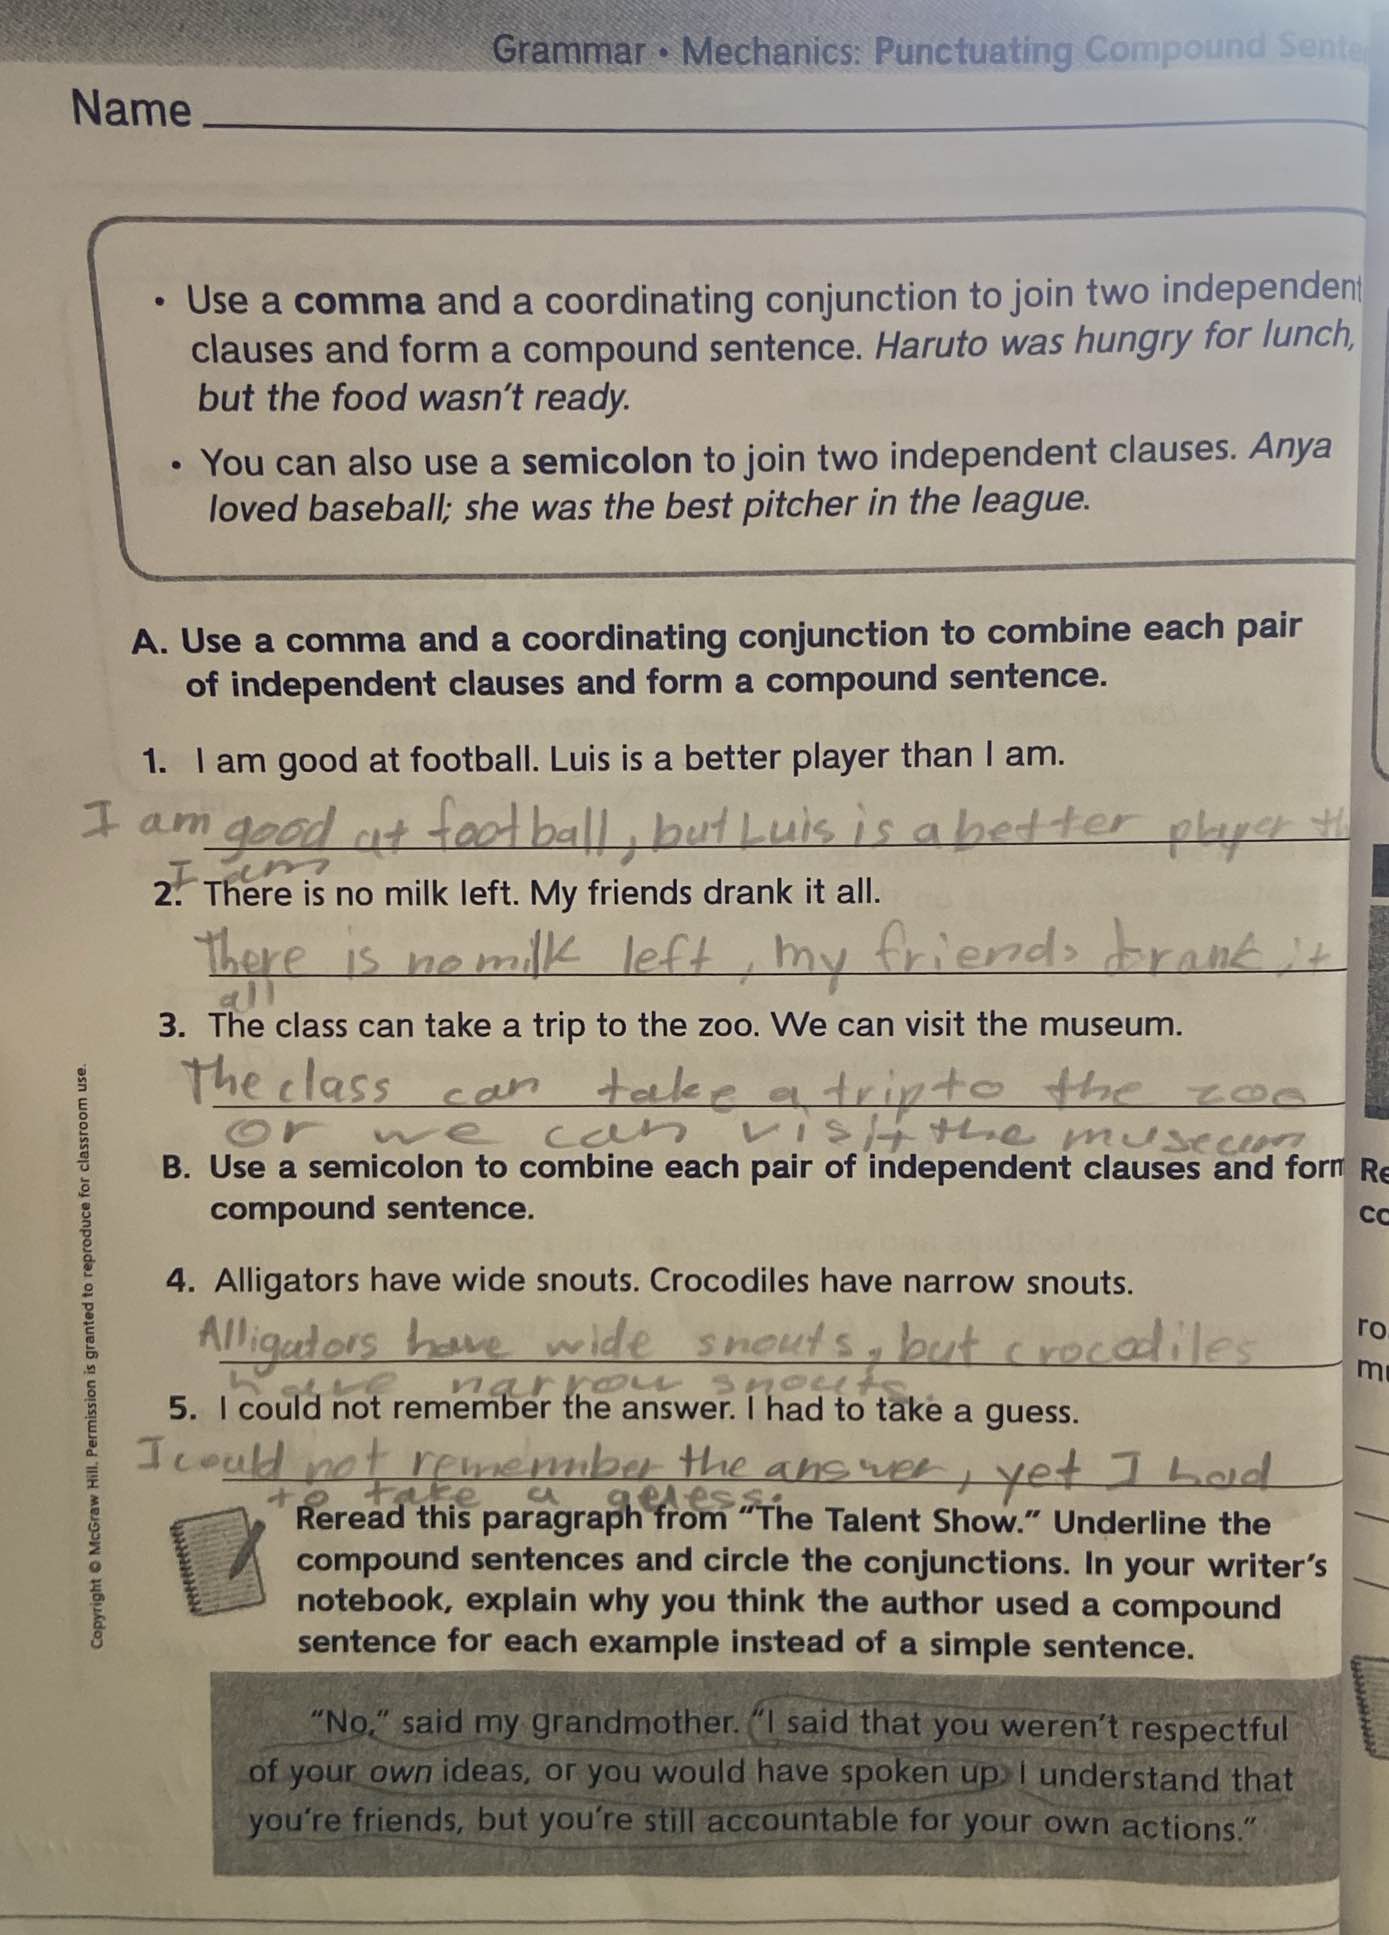 Grammar • Mechanics: Punctuating Compound
Name
• Use a comma and a coordinating conjunction to join two independent
clauses and form a compound sentence. Haruto was hungry for lunch,
but the food wasn't ready.
• You can also use a semicolon to join two independent clauses. Anya
loved baseball; she was the best pitcher in the league.
A. Use a comma and a coordinating conjunction to combine each pair
of independent clauses and form a compound sentence.
1. I am good at football. Luis is a better player than I am.
I am good at football, but Luis is a better player
I am
2. There is no milk left. My friends drank it all.
There is no milk left, my friends drank it
all
3. The class can take a trip to the zoo. We can visit the museum.
The class can take a trip to the zoo
or we can visit the museum
B. Use a semicolon to combine each pair of independent clauses and form
compound sentence.
4. Alligators have wide snouts. Crocodiles have narrow snouts.
Alligators have wide snouts, but crocodiles
have narrow snouts.
5. I could not remember the answer. I had to take a guess.
I could not remember the answer, yet I had
to take a guess.
Reread this paragraph from "The Talent Show." Underline the
compound sentences and circle the conjunctions. In your writer's
notebook, explain why you think the author used a compound
sentence for each example instead of a simple sentence.
"No," said my grandmother. "I said that you weren't respectful
of your own ideas, or you would have spoken up. I understand that
you're friends, but you're still accountable for your own actions."
Copyright © McGraw Hill. Permission is granted to reproduce for classroom use.